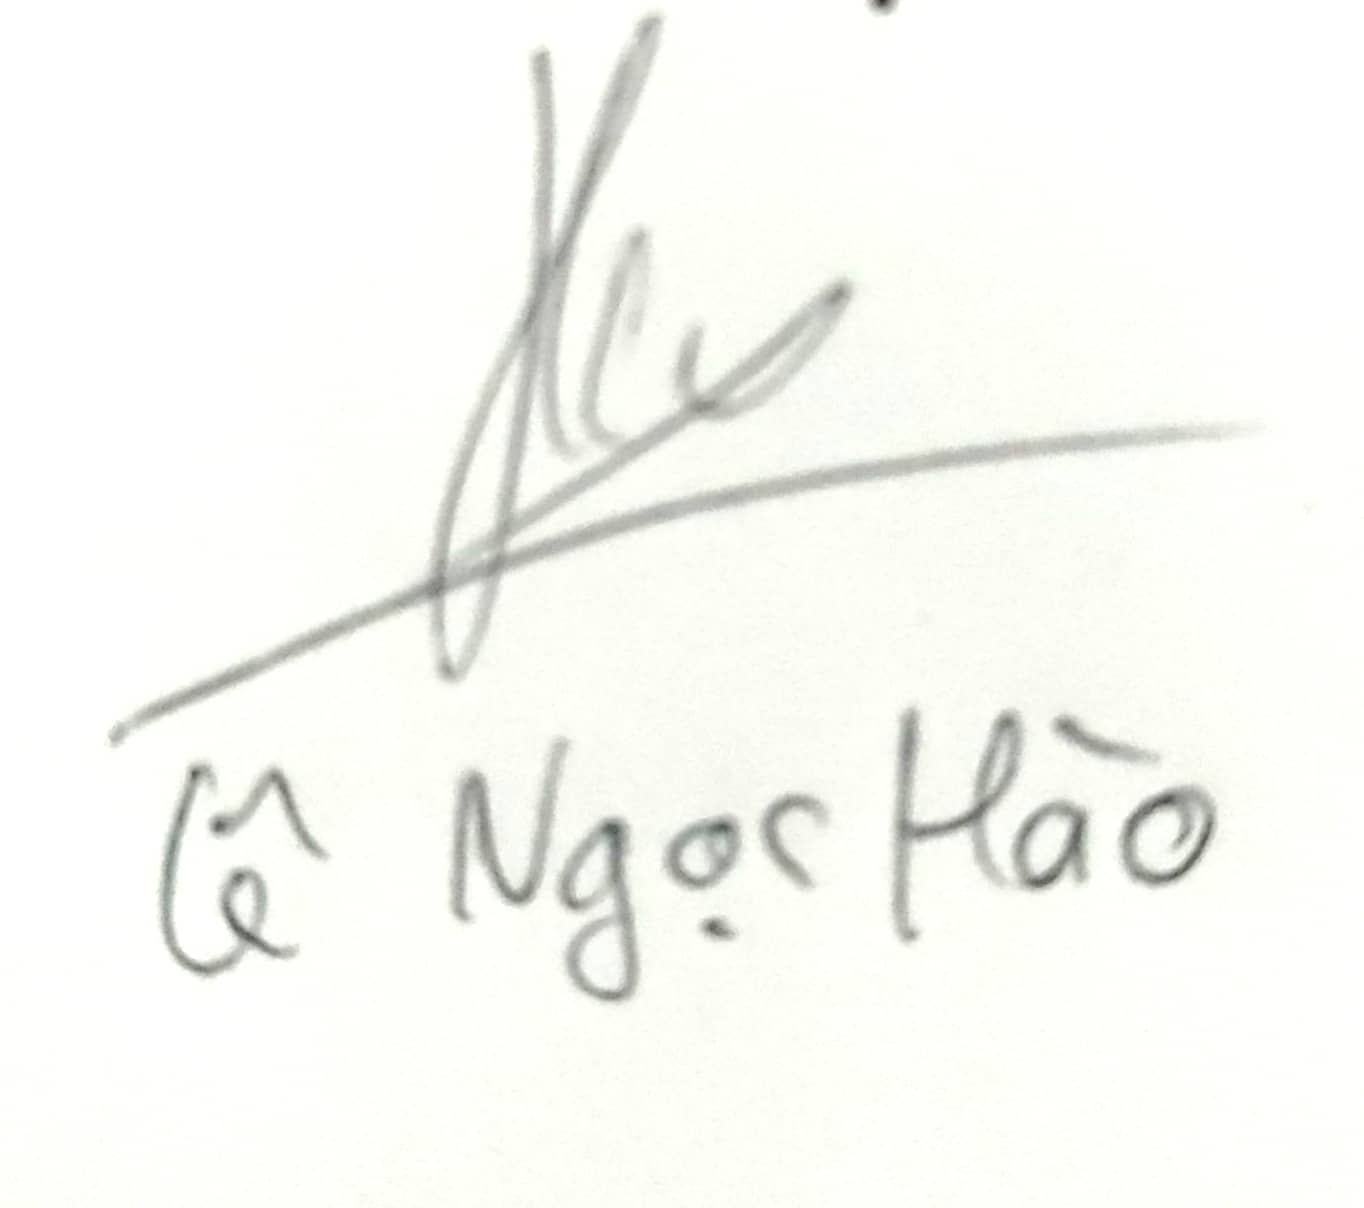 Lê Ngọc Hào